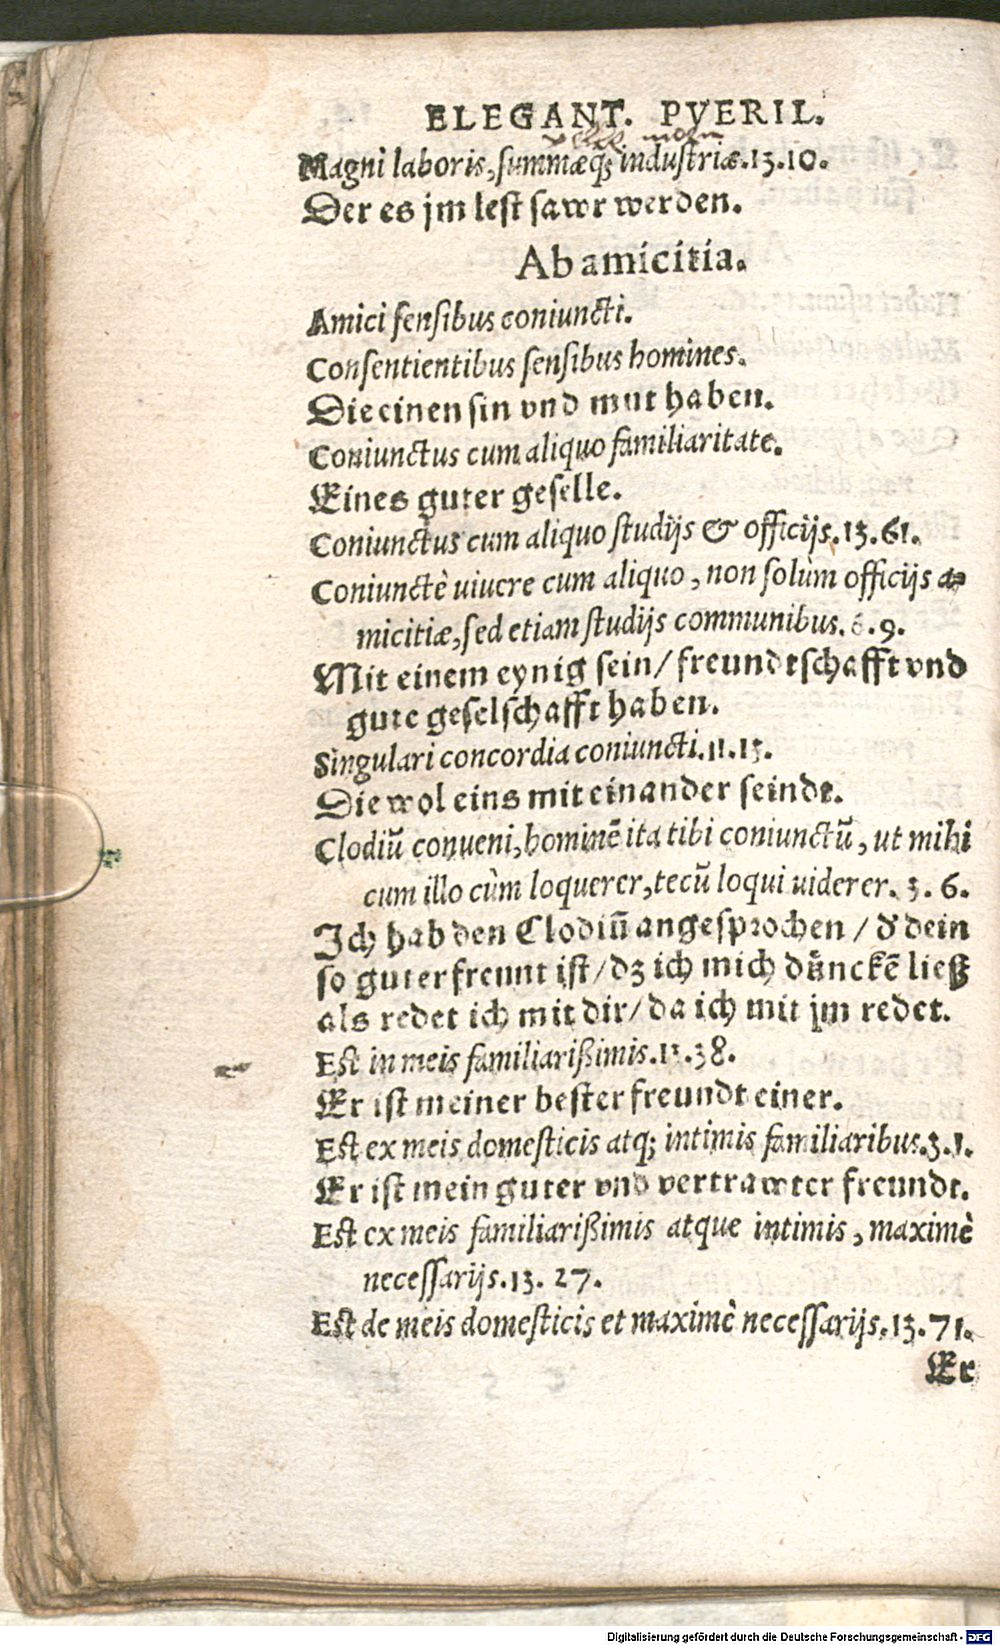 ELEGANT. PVERIL.
Magni laboris, summæq; industriæ. 13. 10.
Der es jm lest sawr werden.
Ab amicitia.
Amici sensibus coniuncti.
Consentientibus sensibus homines.
Die einen sin vnd mut haben.
Coniunctus cum aliquo familiaritate.
Eines guter geselle.
Coniunctus cum aliquo studijs & officijs. 13. 61.
Coniunctè uiuere cum aliquo, non solùm officijs a-
micitiæ, sed etiam studijs communibus. 6. 9.
Mit einem eynig sein/ freundtschafft vnd
gute geselschafft haben.
Singulari concordia coniuncti. 11. 15.
Die wol eins mit einander seindt.
Clodiũ conueni, hominẽ ita tibi coniunctũ, ut mihi
cum illo cùm loquerer, tecũ loqui uiderer. 3. 6.
Ich hab den Clodiũ angesprochen / d dein
so guter freunt ist/ dz ich mich dünckẽ ließ
als redet ich mit dir/ da ich mit jm redet.
Est in meis familiarißimis. 13. 38.
Er ist meiner bester freundt einer.
Est ex meis domesticis atq; intimis familiaribus. 3. 1.
Er ist mein guter vnd vertrawter freundt.
Est ex meis familiarißimis atque intimis, maximè
necessarijs. 13. 27.
Est de meis domesticis et maximè necessarijs. 13. 71.
Er
Digitalisierung gefördert durch die Deutsche Forschungsgemeinschaft - DFG